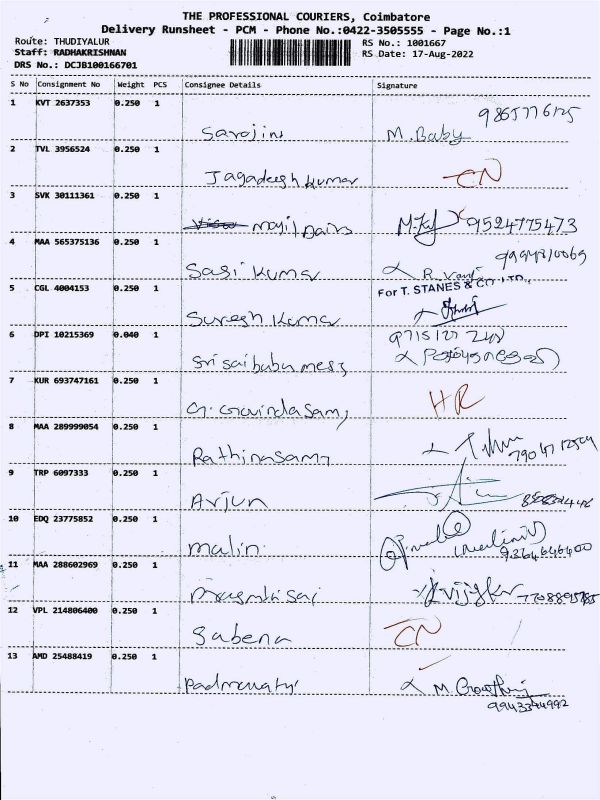 THE PROFESSIONAL COURIERS, Coimbatore
Delivery Runsheet - PCM - Phone No.:0422-3505555 - Page No.:1
Route: THUDIYALUR RS No.: 1001667
Staff: RADHAKRISHNAN RS Date: 17-Aug-2022
DRS No.: DCJB100166701
S No Consignment No Weight PCS Consignee Details Signature
1 KVT 2637353 0.250 1
Sarojini M. Baby
2 TVL 3956524 0.250 1
Jagadeesh kumar CN
3 SVK 30111361 0.250 1
9524775473
4 MAA 565375136 0.250 1
Sasi kumar
5 CGL 4004153 0.250 1 For T. STANES & CO. LTD.,
Suresh Kumar
6 DPI 10215369 0.040 1
Srisaibaba mess
7 KUR 693747161 0.250 1 HR
G. Govindasamy
8 MAA 289999054 0.250 1
Rathinasamy
9 TRP 6097333 0.250 1
Arjun
10 EDQ 23775852 0.250 1
malini 9364646400
11 MAA 288602969 0.250 1
12 VPL 214806400 0.250 1
Sabena CN
13 AMD 25488419 0.250 1
Padmavathi
9943344992